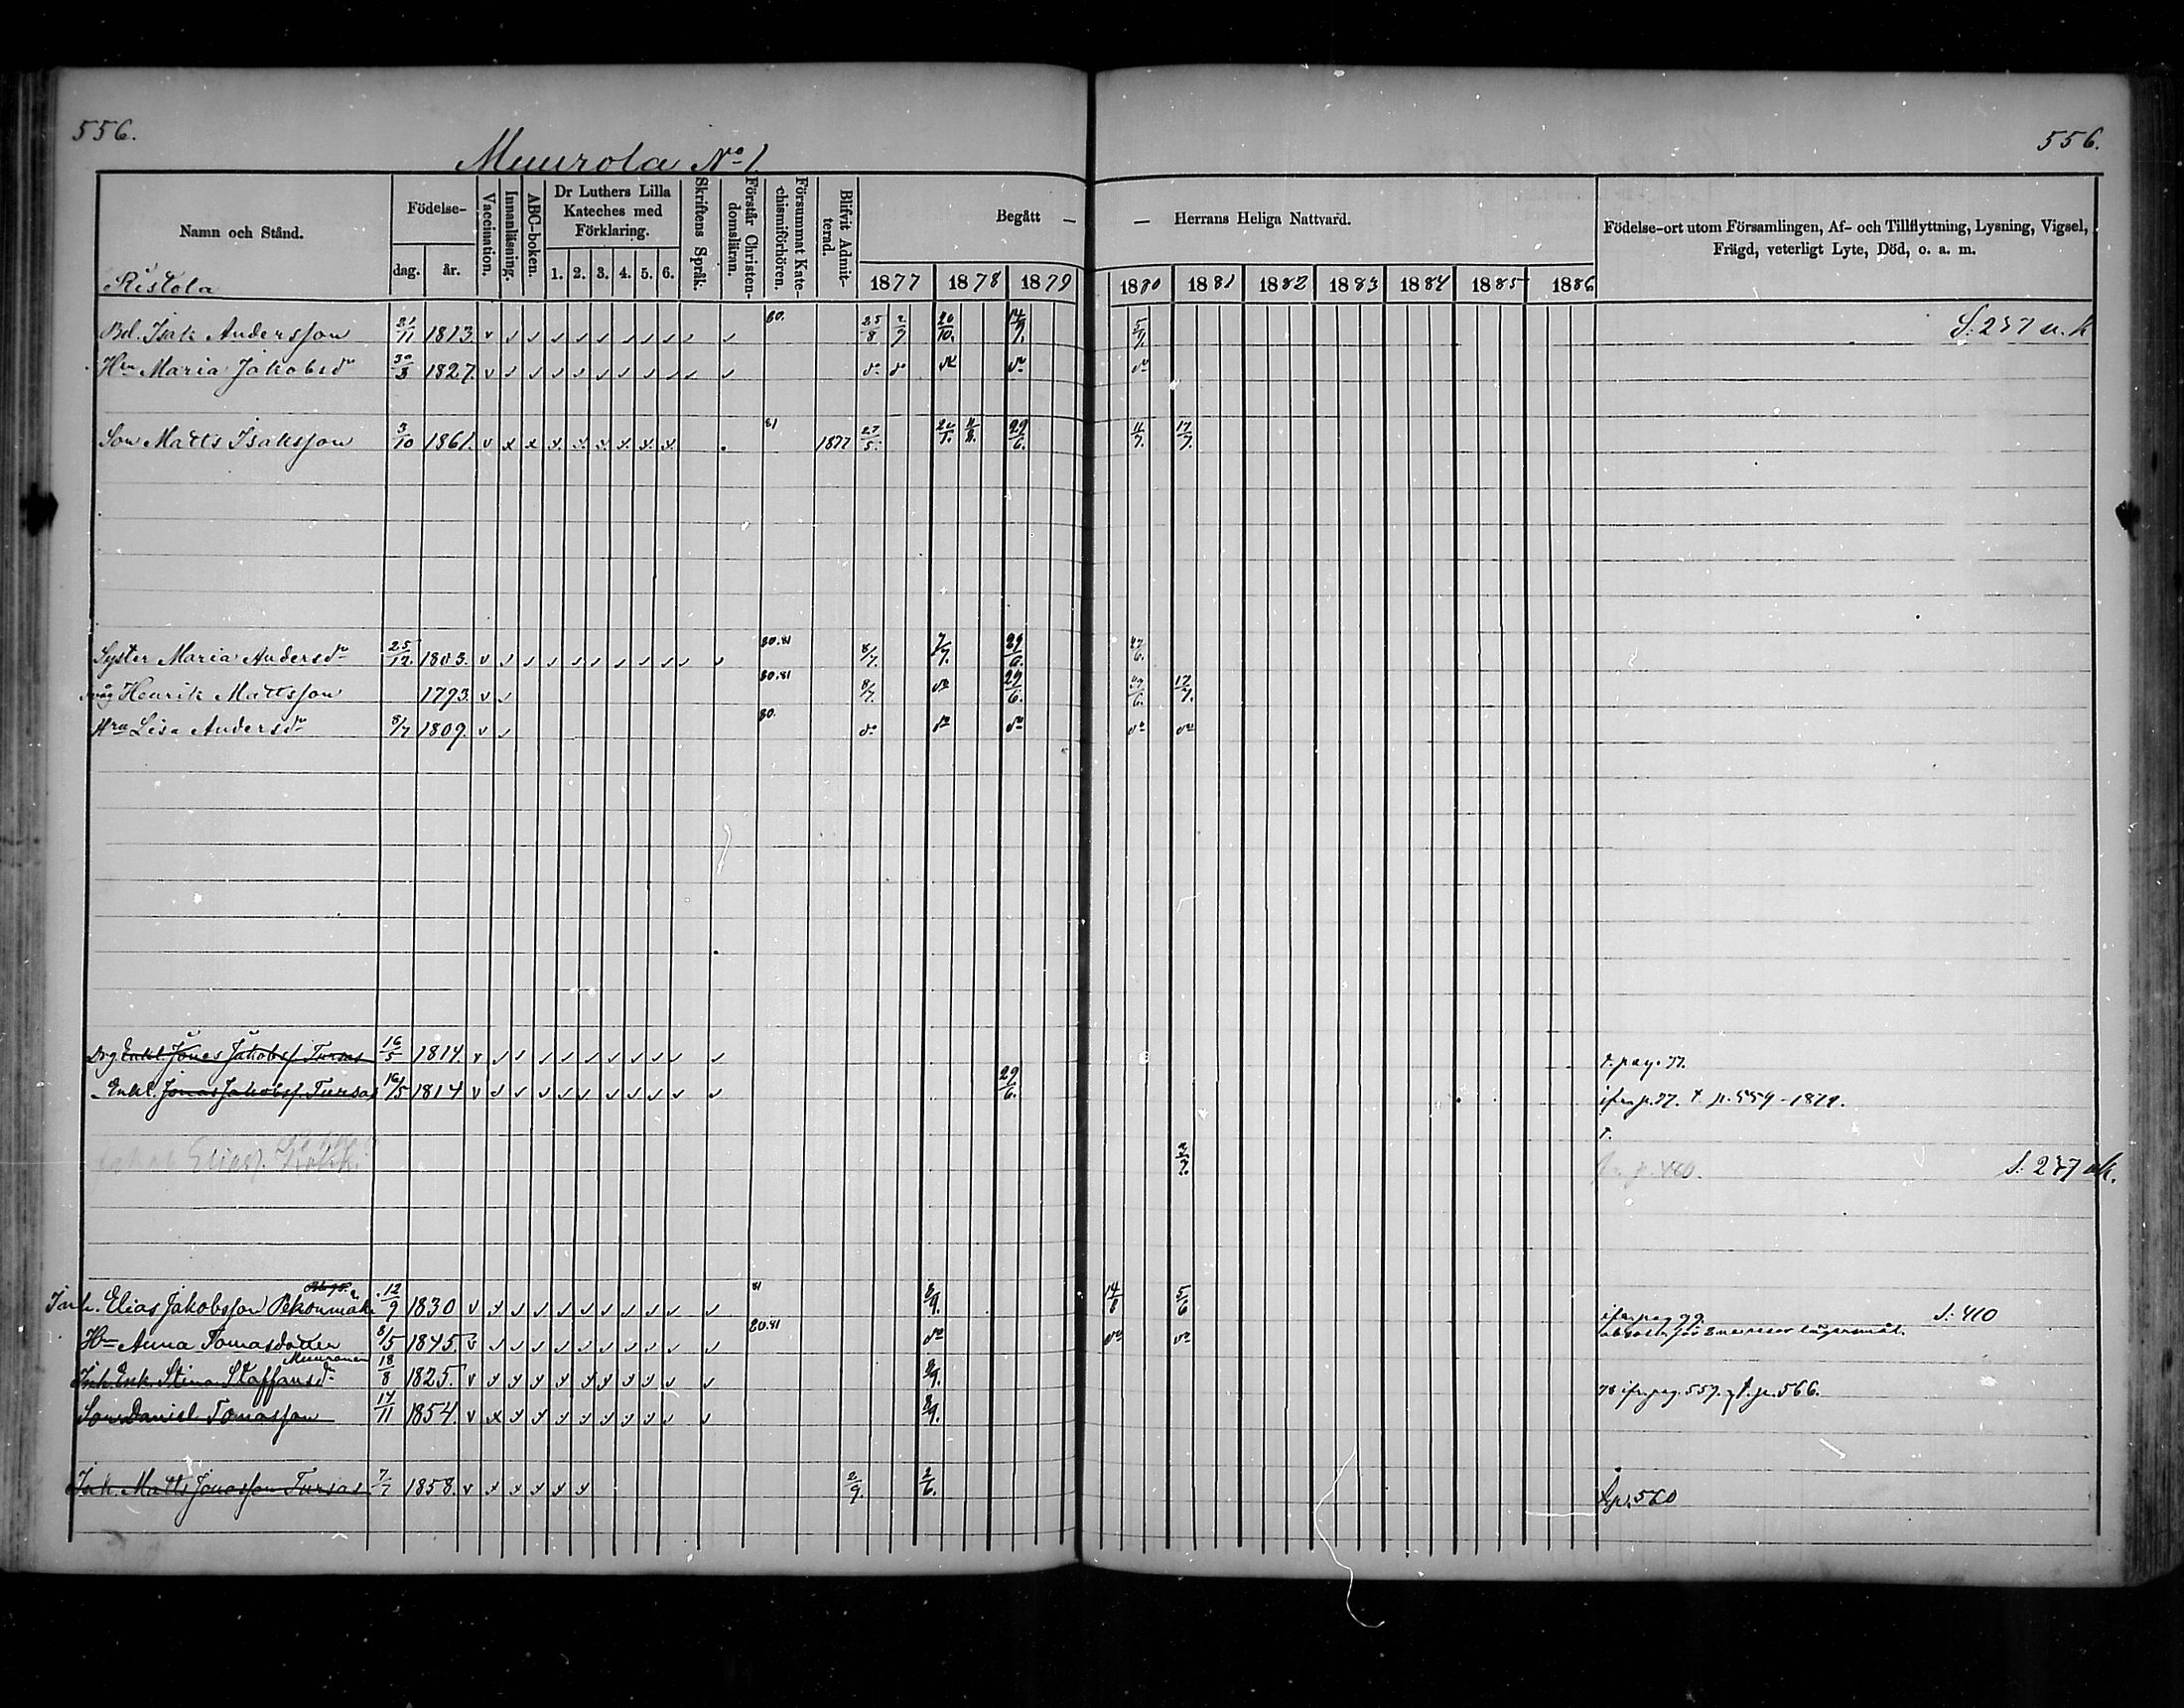 556.
556.
Muurola No 1.
Namn och Stånd.
Födelse-
dag. år.
Vaccination.
Innanläsning.
ABC-boken.
Dr Luthers Lilla Kateches med Förklaring.
1. 2. 3. 4. 5. 6.
Skriftens Språk.
Förstår Christendomsläran.
Försummat Katechismiförhören.
Blifvit Admitterad.
Begått — — Herrans Heliga Nattvard.
1877 1878 1879 1880 1881 1882 1883 1884 1885 1886
Födelse-ort utom Församlingen, Af- och Tillflyttning, Lysning, Vigsel,
Frägd, veterligt Lyte, Död, o. a. m.
Ristola
Bd. Isak Andersson 21/11 1813. v 80. 25/8 2/9 20/10. 14/9. 5/9. S. 237 u. k
Hru Maria Jakobsdr 30/3 1827. v do do do do do
Son Matts Isaksson 3/10 1861. v x x x. x. x. x. x. x. 81 1877 27/5. 21/7. 11/8. 29/6. 11/7. 17/7.
Syster Maria Andersdr 25/12. 1803. v 80.81 8/7. 7/7. 29/6. 27/6.
Måg Henrik Mattsson 1793. v 80.81 8/7. do 29/6. 27/6. 17/7.
Hru Lisa Andersdr 8/7 1809. v 80. do do do do do
Drg Enkl. Jonas Jakobss. Tursas 16/5 1814. v t. pag. 77.
Enkl. Jonas Jakobss. Tursas 16/5 1814 v 29/6. ifr. p. 77. t. p. 559 - 1879.
t.
Eliass. 2/7. fr. p. 460. S. 237 uk.
Inh. Elias Jakobsson 12/9 1830 v 81 8/9. 14/8 5/6 ifr. pag 99. S. 410
Hru Anna Tomasdotter 8/5 1845. v 80.81 do do do
Muuronen
Inh. Enk. Stina Staffansdr 18/8 1825. v 8/9. 78 ifr. pag. 557. t. p. 566.
Son Daniel Tomasson 17/11 1854. v x 8/9.
Inh. Matts Jonasson Tursas 7/7 1858. v 2/9. 2/6. t. p. 560